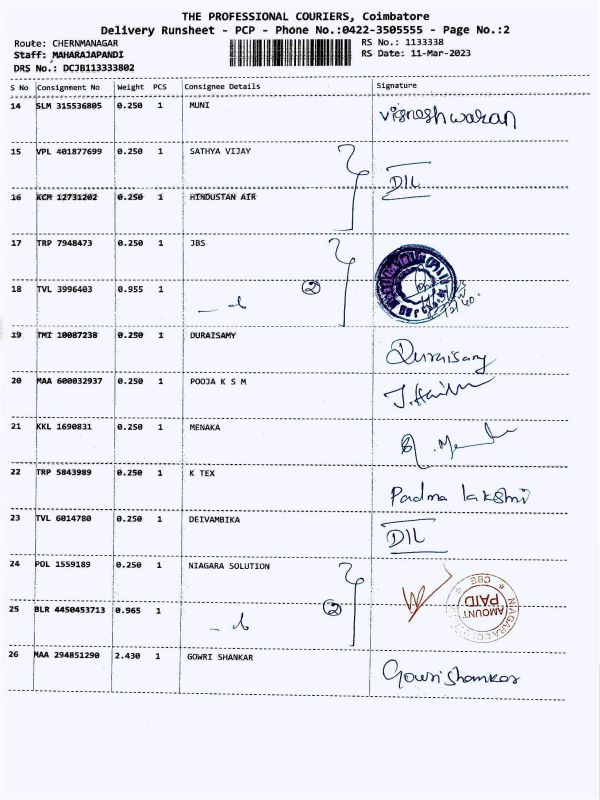 THE PROFESSIONAL COURIERS, Coimbatore
Delivery Runsheet - PCP - Phone No.:0422-3505555 - Page No.:2
Route: CHERNMANAGAR
RS No.: 1133338
Staff: MAHARAJAPANDI
RS Date: 11-Mar-2023
DRS No.: DCJB113333802
S No Consignment No Weight PCS Consignee Details Signature
14 SLM 315536805 0.250 1 MUNI Vigneshwaran
15 VPL 401877699 0.250 1 SATHYA VIJAY DIL
16 KCM 12731202 0.250 1 HINDUSTAN AIR
17 TRP 7948473 0.250 1 JBS
18 TVL 3996403 0.955 1 2
19 TMI 10087238 0.250 1 DURAISAMY Duraisamy
20 MAA 600032937 0.250 1 POOJA K S M
21 KKL 1690831 0.250 1 MENAKA
22 TRP 5843989 0.250 1 K TEX Padma lakshmi
23 TVL 6014780 0.250 1 DEIVAMBIKA DIL
24 POL 1559189 0.250 1 NIAGARA SOLUTION
AMOUNT PAID CBE
25 BLR 4450453713 0.965 1 2
26 MAA 294851290 2.430 1 GOWRI SHANKAR Gowrishankar